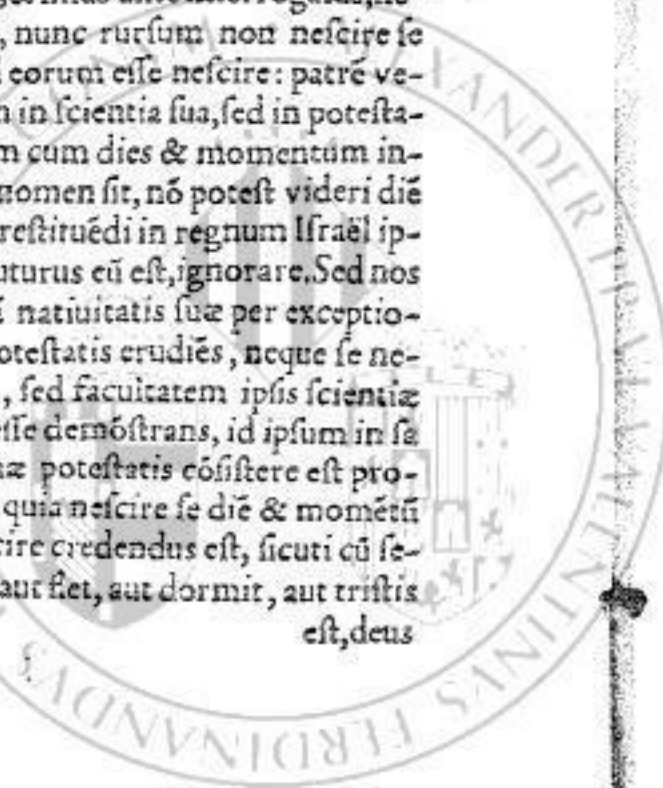 , nunc rurſum non neſcire ſe
eorum eſſe neſcire: patrē ve-
in ſcientia ſua, ſed in poteſta-
m cum dies & momentum in-
nomen ſit, nō poteſt videri diē
reſtituēdi in regnum Iſraël ip-
uturus eū eſt, ignorare. Sed nos
natiuitatis ſuæ per exceptio-
oteſtatis erudiēs, neque ſe ne-
, ſed facultatem ipſis ſcientiæ
eſſe demōſtrans, id ipſum in ſa
æ poteſtatis cōſiſtere eſt pro-
quia neſcire ſe diē & momētū
cire credendus eſt, ſicuti cū ſe-
aut flet, aut dormit, aut triſtis
eſt, deus